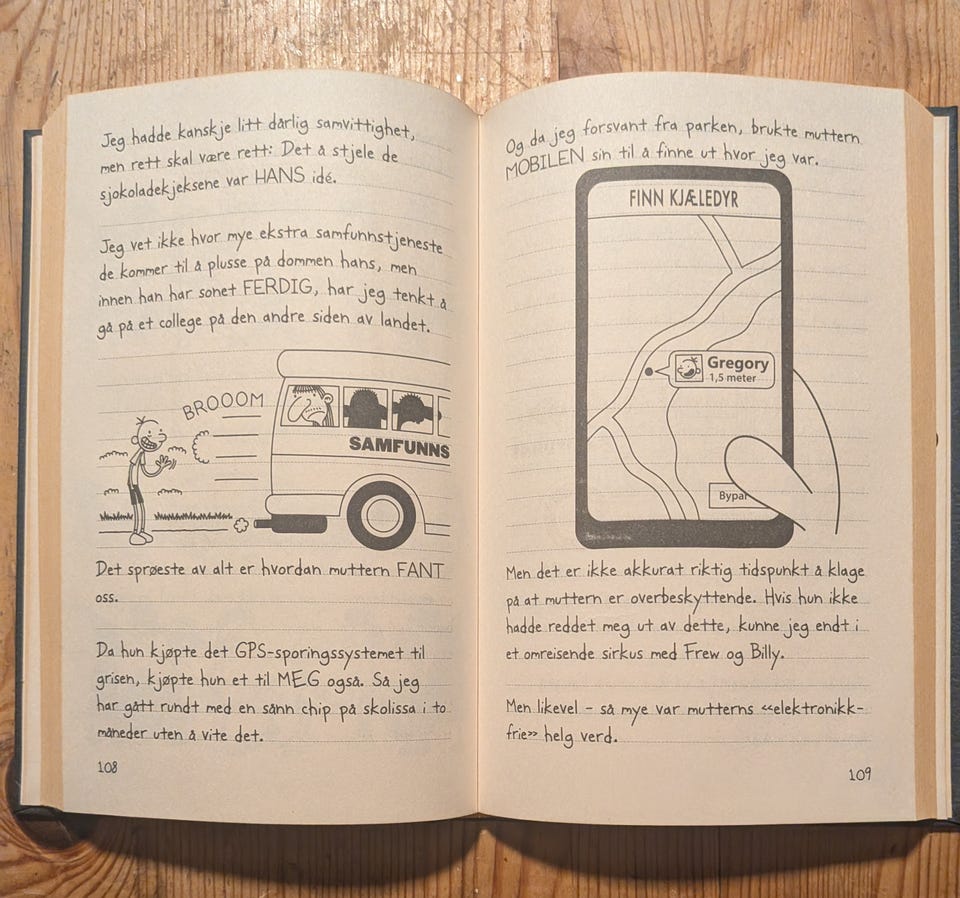 Jeg hadde kanskje litt dårlig samvittighet,
men rett skal være rett: Det å stjele de
sjokoladekjeksene var HANS idé.
Jeg vet ikke hvor mye ekstra samfunnstjeneste
de kommer til å plusse på dommen hans, men
innen han har sonet FERDIG, har jeg tenkt å
gå på et college på den andre siden av landet.
BROOOM
SAMFUNNS
Det sprøeste av alt er hvordan muttern FANT
oss.
Da hun kjøpte det GPS-sporingssystemet til
grisen, kjøpte hun et til MEG også. Så jeg
har gått rundt med en sånn chip på skolissa i to
måneder uten å vite det.
108
Og da jeg forsvant fra parken, brukte muttern
MOBILEN sin til å finne ut hvor jeg var.
FINN KJÆLEDYR
Gregory
1,5 meter
Bypar
Men det er ikke akkurat riktig tidspunkt å klage
på at muttern er overbeskyttende. Hvis hun ikke
hadde reddet meg ut av dette, kunne jeg endt i
et omreisende sirkus med Frew og Billy.
Men likevel – så mye var mutterns «elektronikk-
frie» helg verd.
109